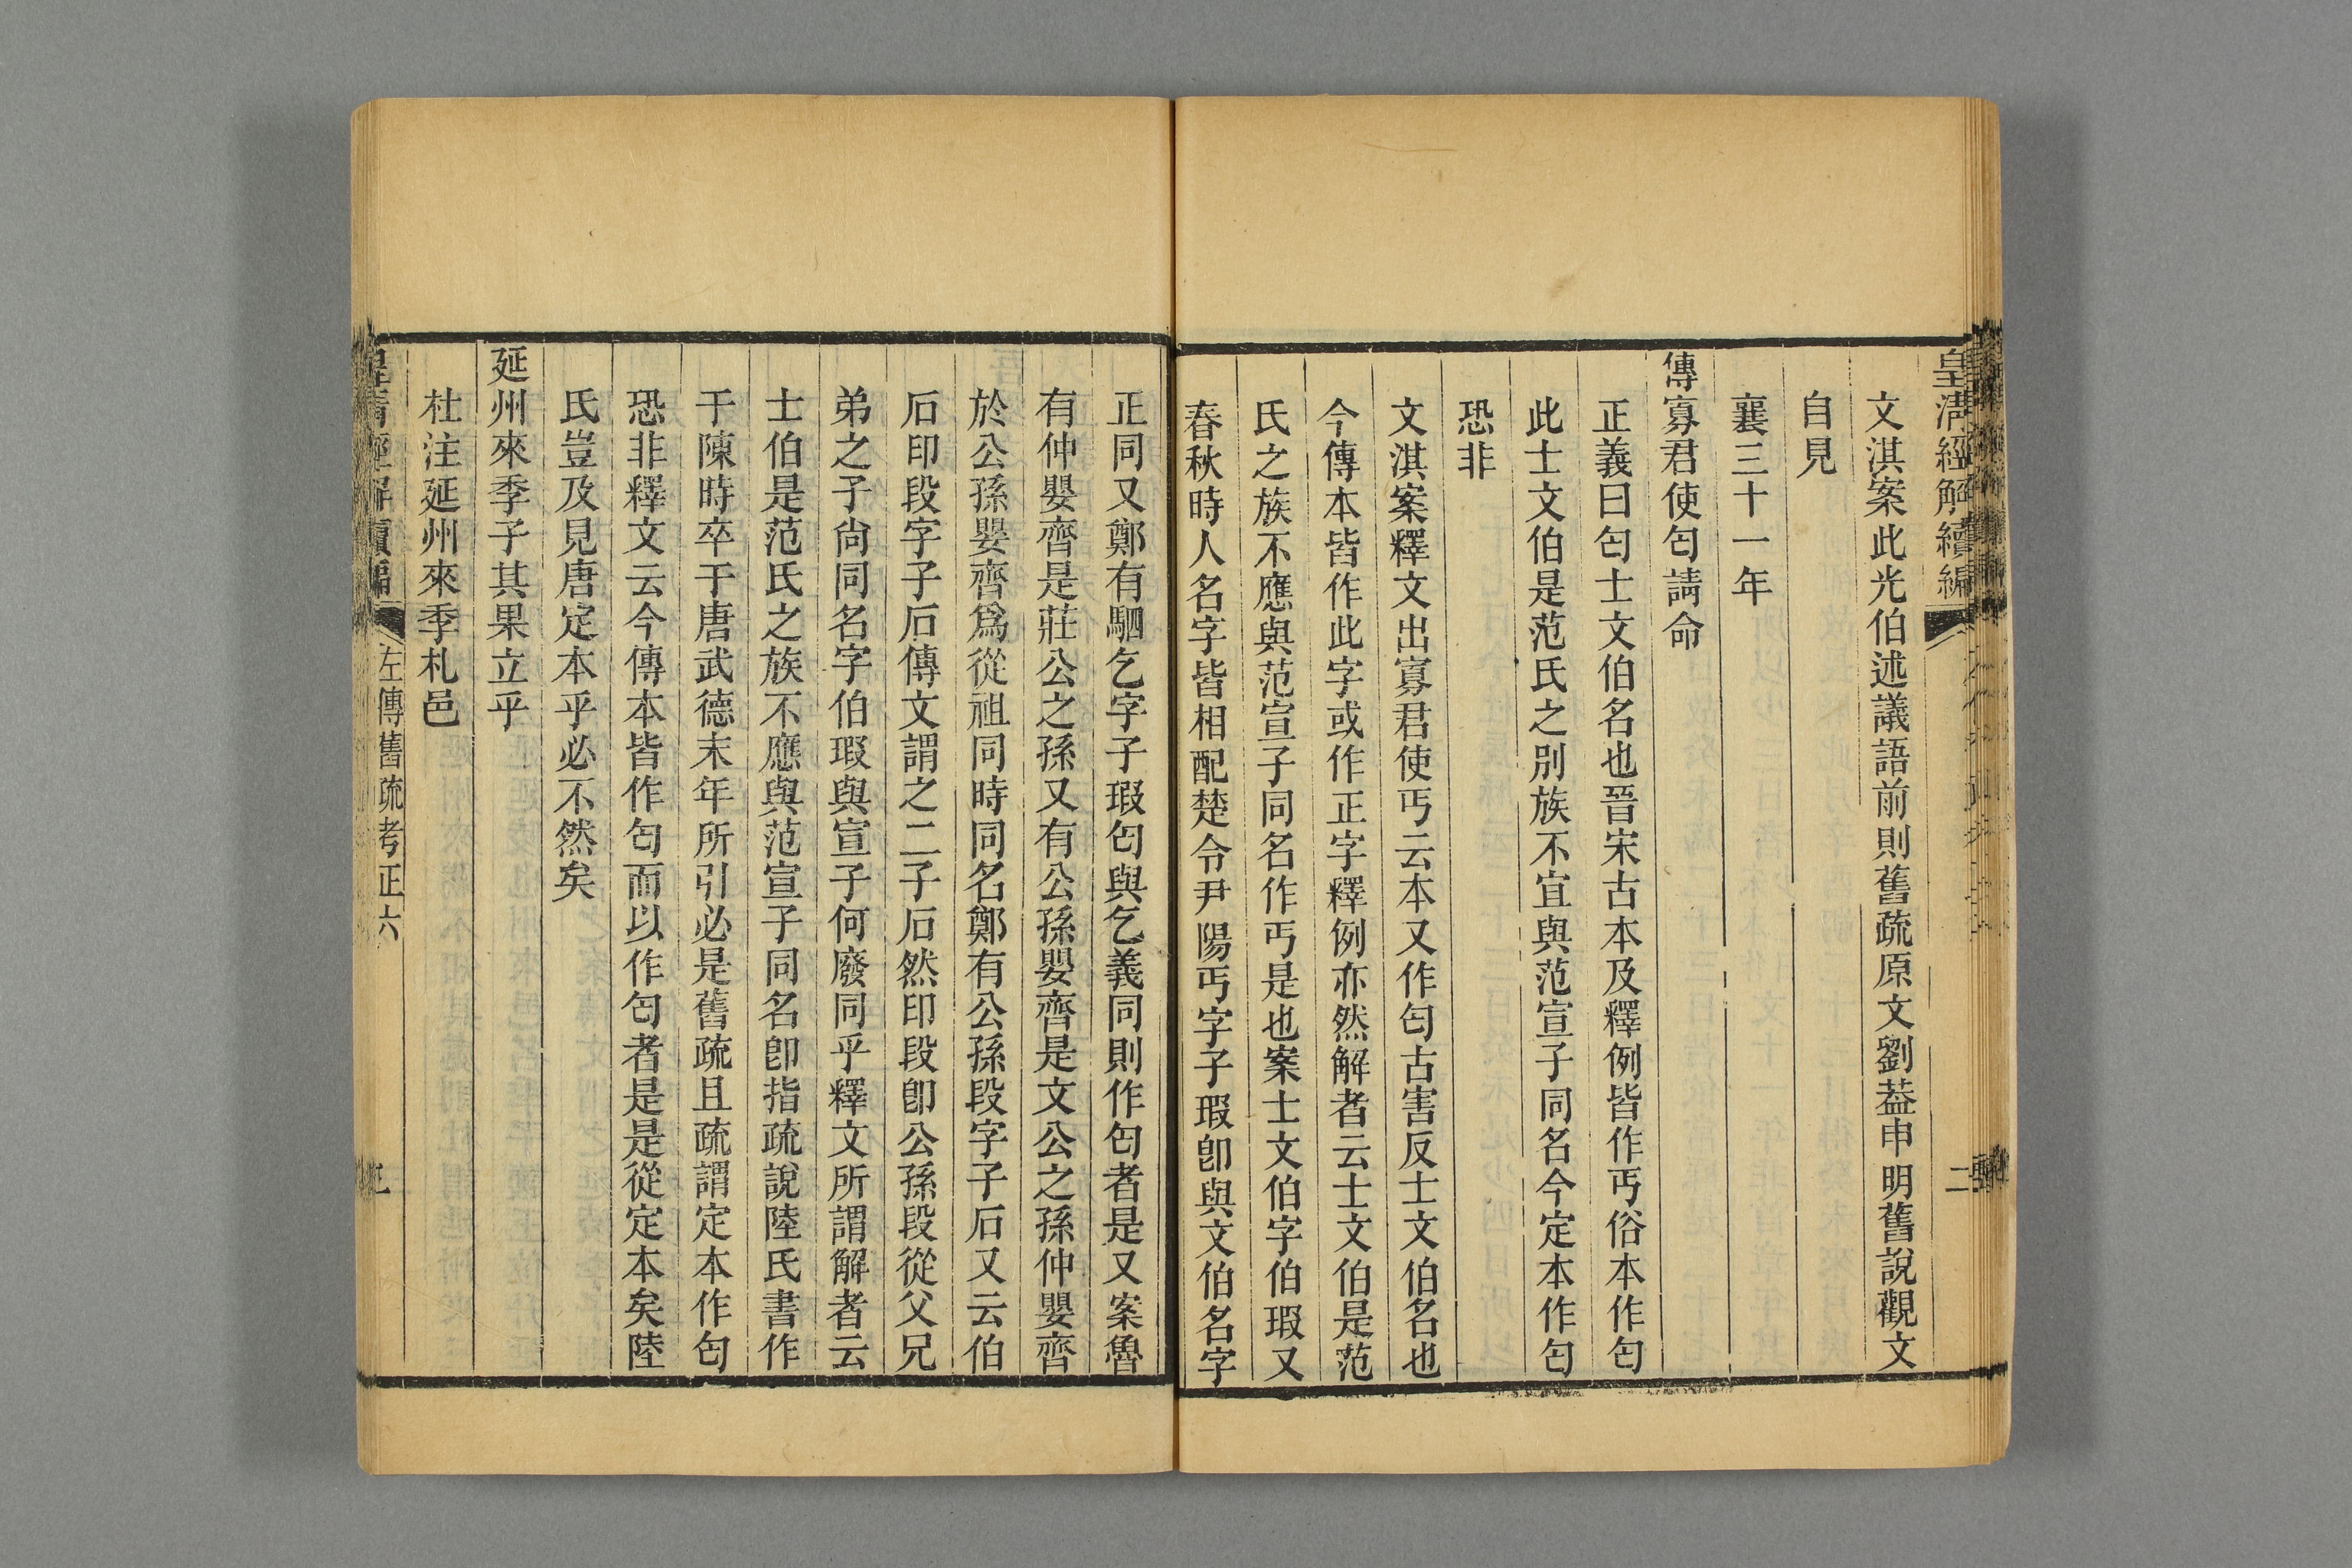 皇淸經解續編
二
文淇案此光伯述議語前則舊疏原文劉葢申明舊說觀文
自見
襄三十一年
傳寡君使匄請命
正義曰匄士文伯名也晉宋古本及釋例皆作丐俗本作匄
此士文伯是范氏之別族不宜與范宣子同名今定本作匄
恐非
文淇案釋文出寡君使丐云本又作匄古害反士文伯名也
今傳本皆作此字或作正字釋例亦然解者云士文伯是范
氏之族不應與范宣子同名作丐是也案士文伯字伯瑕又
春秋時人名字皆相配楚令尹陽丐字子瑕卽與文伯名字
正同又鄭有駟乞字子瑕匄與乞義同則作匄者是又案魯
有仲嬰齊是莊公之孫又有公孫嬰齊是文公之孫仲嬰齊
於公孫嬰齊爲從祖同時同名鄭有公孫段字子石又云伯
石印段字子石傳文謂之二子石然印段卽公孫段從父兄
弟之子尙同名字伯瑕與宣子何廢同乎釋文所謂解者云
士伯是范氏之族不應與范宣子同名卽指疏說陸氏書作
于陳時卒于唐武德末年所引必是舊疏且疏謂定本作匄
恐非釋文云今傳本皆作匄而以作匄者是是從定本矣陸
氏豈及見唐定本乎必不然矣
延州來季子其果立乎
杜注延州來季札邑
皇淸經解續編
左傳舊疏考正六